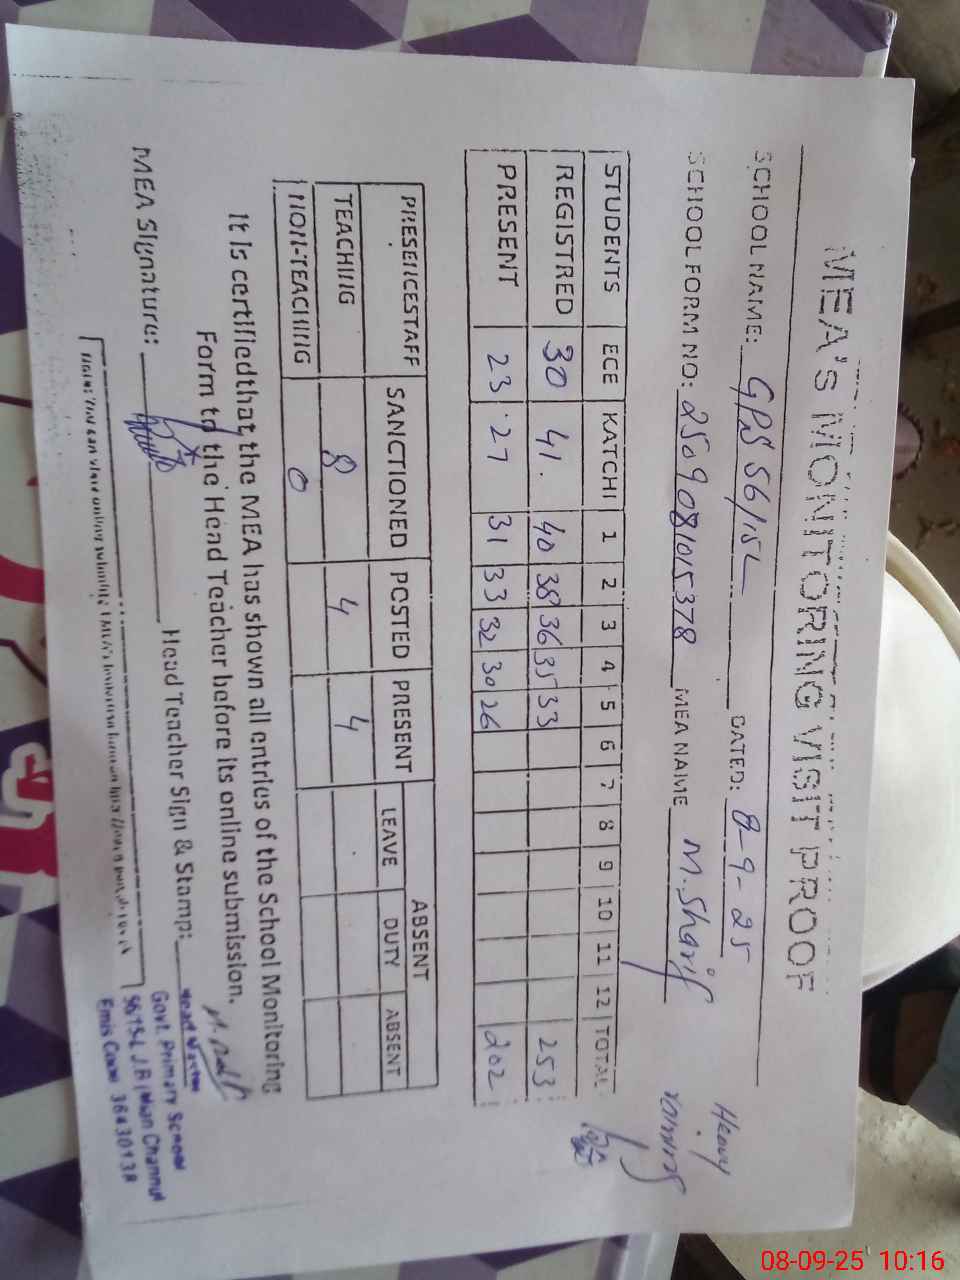 MEA's MONITORING VISIT PROOF
SCHOOL NAME: GPS 56/15L DATED: 8-9-25
Heavy
raining
SCHOOL FORM NO: 2509081015378 MEA NAME M. Sharif
STUDENTS ECE KATCHI 1 2 3 4 5 6 7 8 9 10 11 12 TOTAL
REGISTRED 30 41 40 38 36 35 33 253
PRESENT 23 27 31 33 32 30 26 202
PRESENCESTAFF SANCTIONED POSTED PRESENT ABSENT
LEAVE DUTY ABSENT
TEACHING 8 4 4
NON-TEACHING 0
It is certifiedthat the MEA has shown all entries of the School Monitoring
Form to the Head Teacher before its online submission.
MEA Signature: Head Teacher Sign & Stamp:
Head Master
Govt. Primary School
56/15-L J.R Mian Channun
Emis Code 36430138
Note: You can view online
08-09-25 10:16